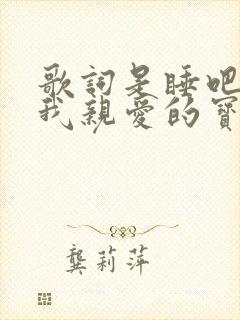 歌詞是睡吧
我親愛的寶
龔莉萍